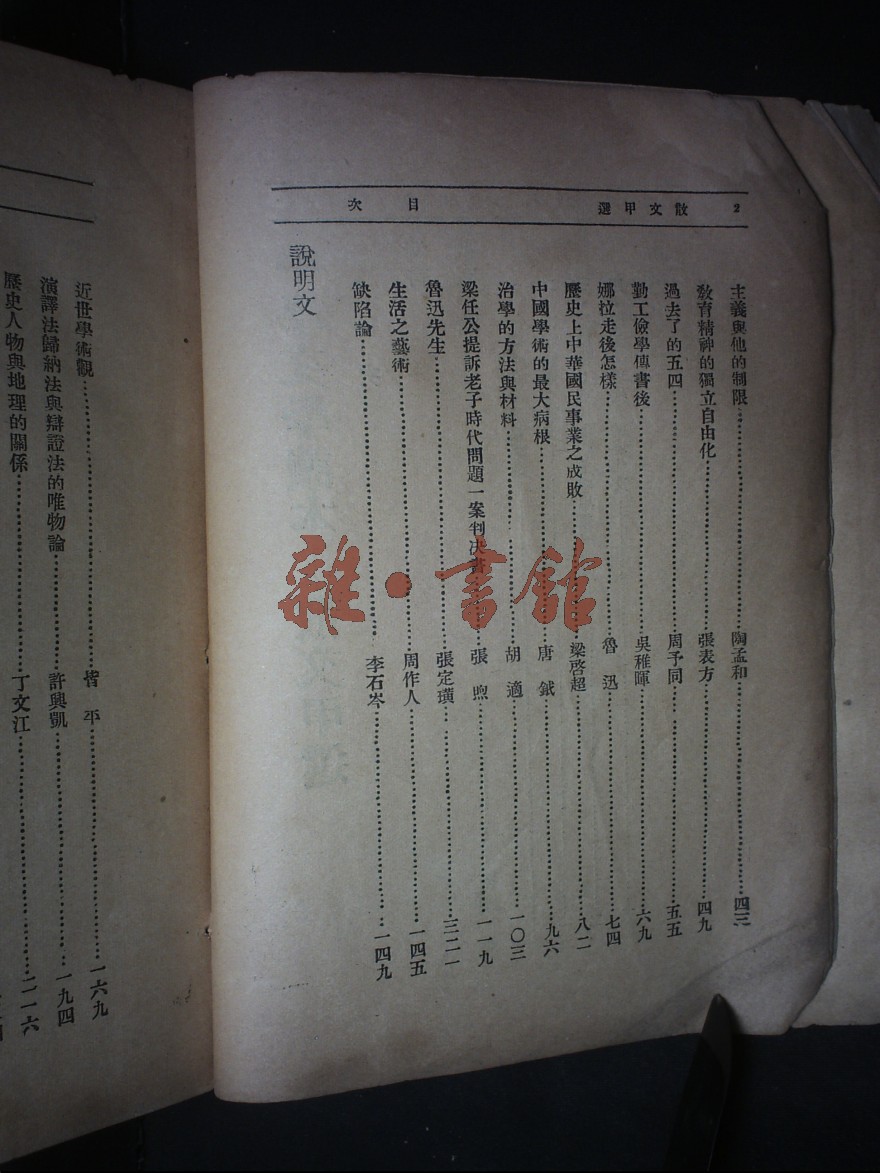 2 散文甲選 目次
主義與他的制限 陶孟和 四三
教育精神的獨立自由化 張表方 四九
過去了的五四 周予同 五五
勤工儉學傳書後 吳稚暉 六九
娜拉走後怎樣 魯迅 七四
歷史上中華國民事業之成敗 梁啓超 八二
中國學術的最大病根 唐鉞 九六
治學的方法與材料 胡適 一〇三
梁任公提訴老子時代問題一案判决書 張煦 一一九
魯迅先生 張定璜
生活之藝術 周作人 一四五
缺陷論 李石岑 一四九
說明文
近世學術觀 皆平 一六九
演譯法歸納法與辯證法的唯物論 許興凱 一九四
歷史人物與地理的關係 丁文江 二一六
雜·書館